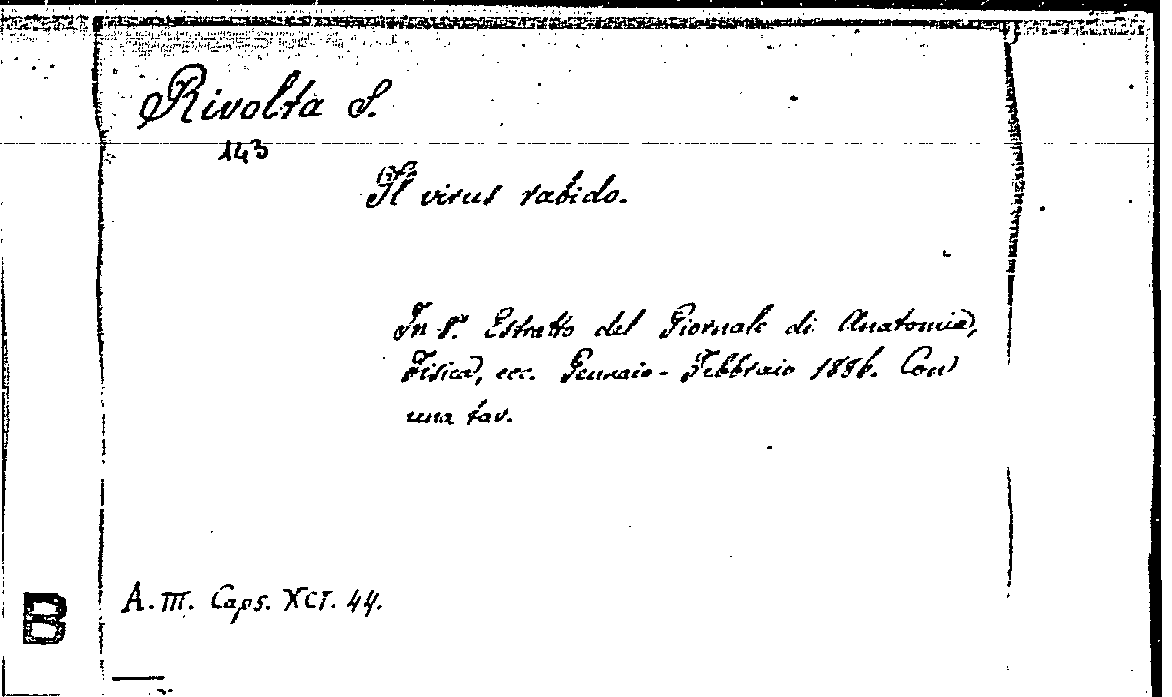 Rivolta S.
143
Il virus rabido.
In-8°. Estratto del Giornale di Anatomia,
Fisica, ecc. Gennaio-Febbraio 1886. Con
una tav.
A. III. Caps. XCI. 44.
B